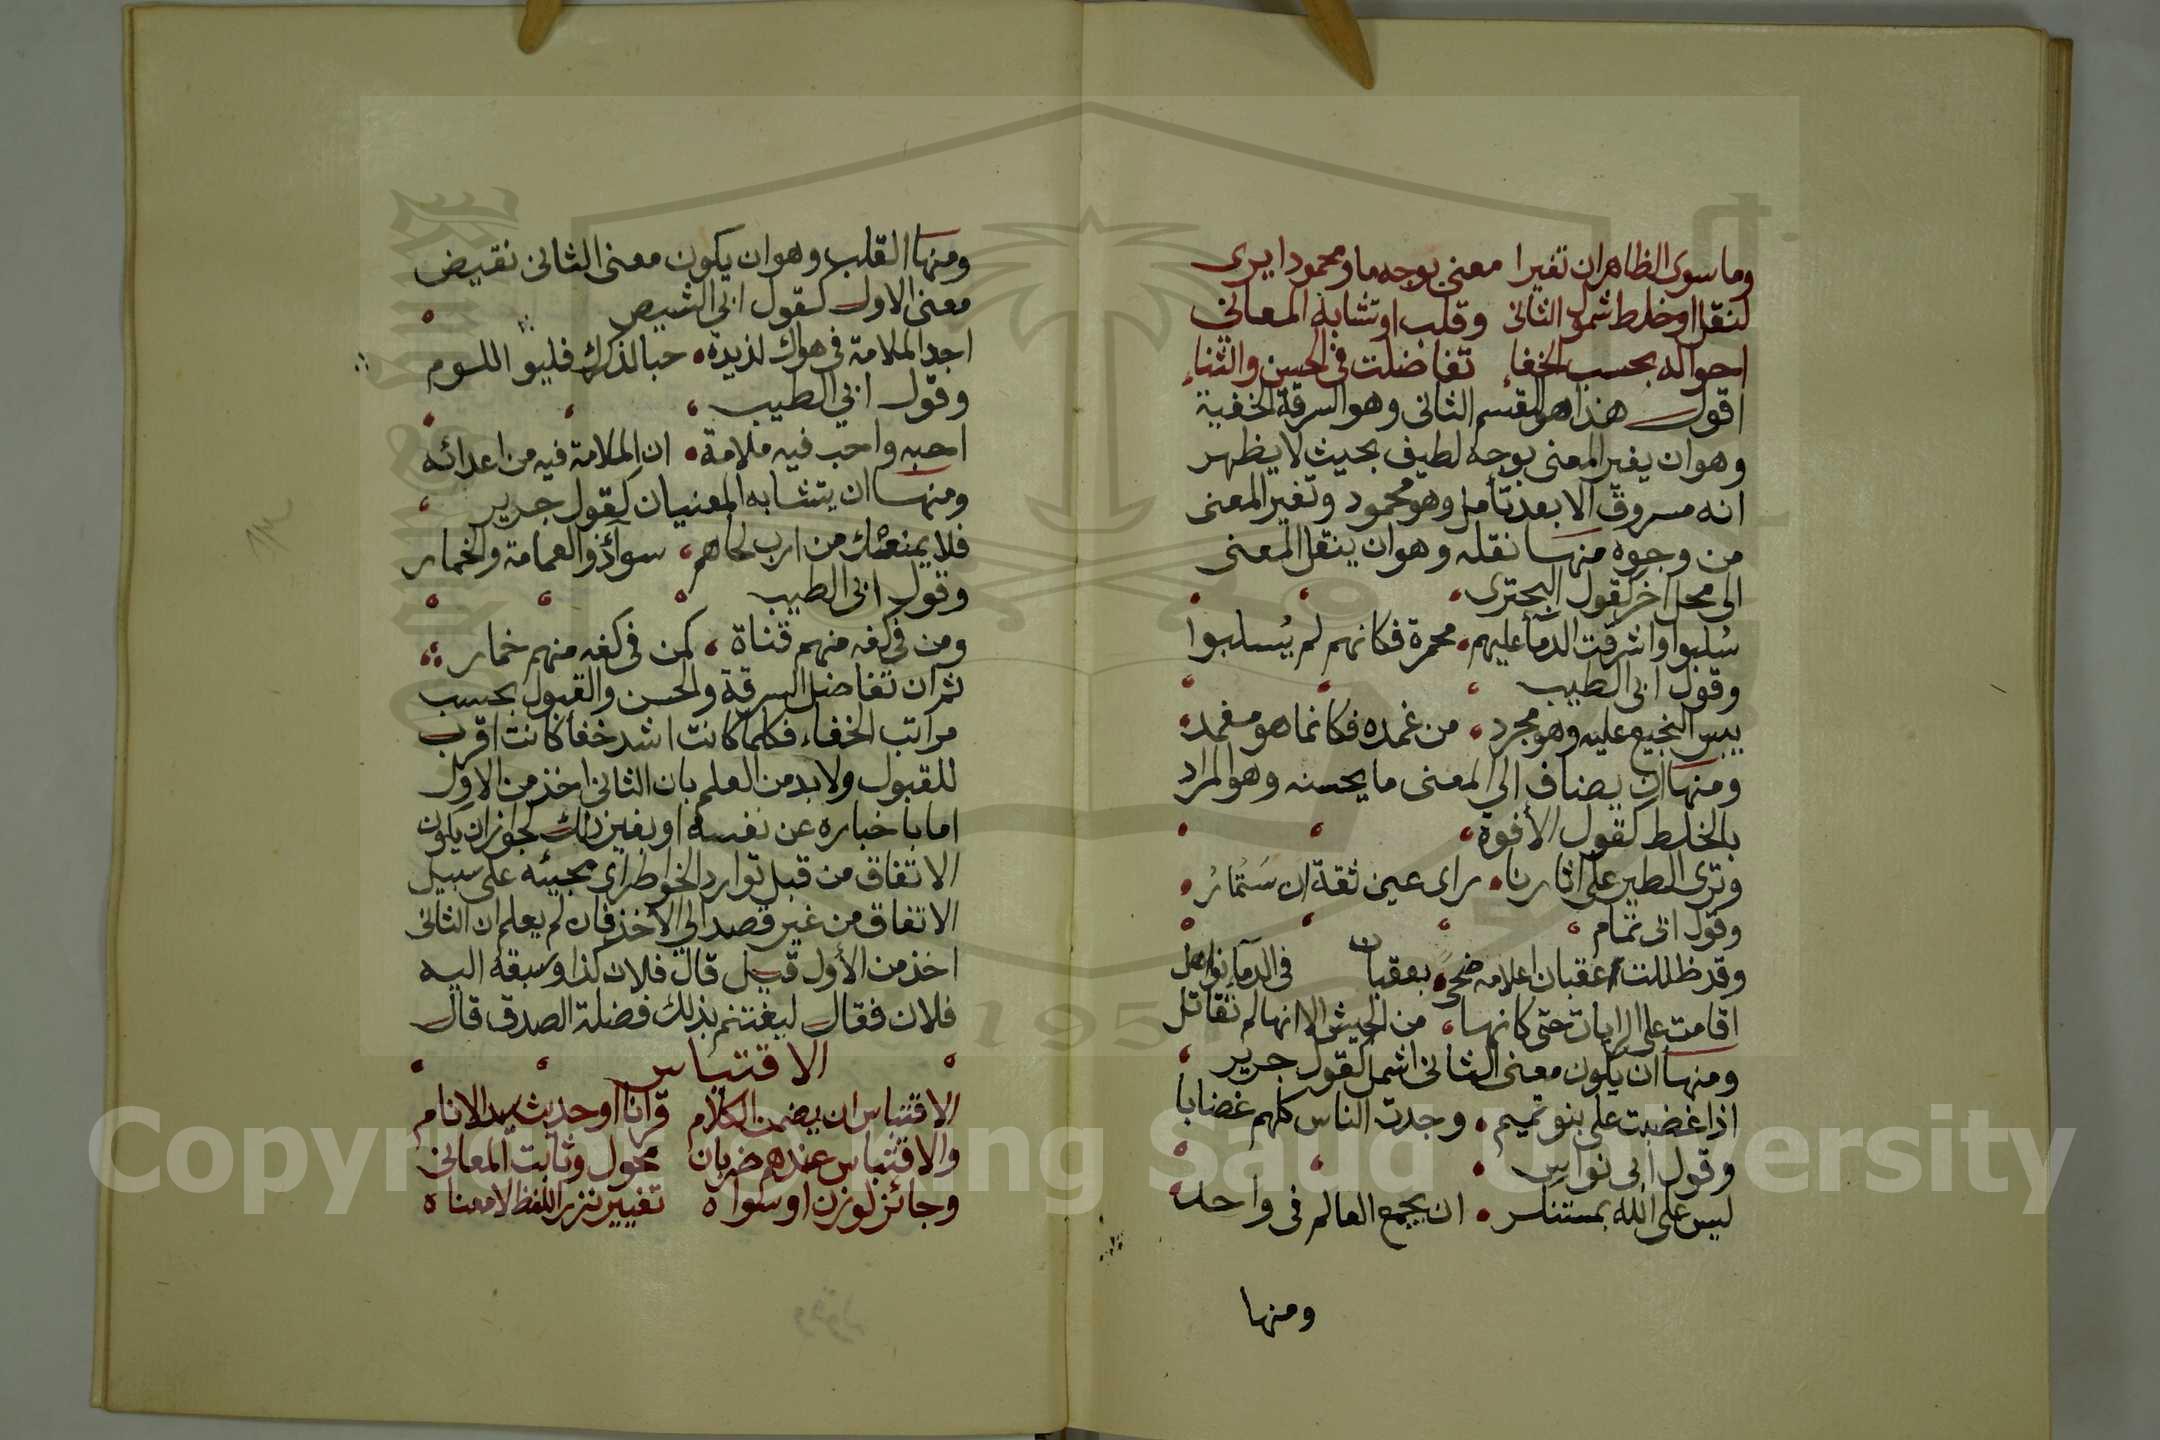 وما سوى الظاهر ان تغيرا معنى بوجه ما ومحمودا يرى
لنقل او خلط شمول الثانى وقلب او تشابه المعاني
احواله بحسب الخفاء تفاضلت فى الحسن والثناء
اقول هذا هو القسم الثانى وهو السرقة الخفية
وهو ان يغير المعنى بوجه لطيف بحيث لا يظهر
انه مسروق الا بعد تأمل وهو محمود وتغير المعنى
من وجوه منها نقله وهو ان ينقل المعنى
الى محل اخر كقول البحترى
سُلبوا واشرقت الدمآ عليهم محمرة فكانهم لم يُسلبوا
وقول ابى الطيب
يبس النجيع عليه وهو مجرد من غمده فكانما هو مغمد
ومنها ان يضاف الى المعنى ما يحسنه وهو المراد
بالخلط كقول الأفوة
وترى الطير على اثارنا راى عين ثقة ان سَتُمارُ
وقول ابى تمام
وقد ظللت عقبان اعلامه ضحىً بعقبان فى الدمآ نواهل
اقامت على الرايات حتى كانها من الجيش الا انها لم تقاتل
ومنها ان يكون معنى الثانى اشمل كقول جرير
اذا غضبت على بنو تميم وجدت الناس كلهم غضابا
وقول ابى نواس
ليس على الله بمستنكر ان يجمع العالم فى واحد
ومنها
ومنها القلب وهو ان يكون معنى الثانى نقيض
معنى الاول كقول ابى الشيص
اجد الملامة فى هواك لذيذة حبا لذكرك فليو اللوم
وقول ابي الطيب
احبه واحب فيه ملامة ان الملامة فيه من اعدائه
ومنها ان يتشابه المعنيان كقول جرير
فلا يمنعنك من ارب لحاهم سوآء ذو العمامة والخمار
وقول ابى الطيب
ومن فى كفه منهم قناة كمن فى كفه منهم خمار
ثم ان تفاضل السرقة والحسن والقبول بحسب
مراتب الخفاء فكلما كانت اشد خفأ كانت اقرب
للقبول ولا بد من العلم بان الثانى اخذ من الاول
اما باخباره عن نفسه او بغير ذلك لجواز ان يكون
الاتفاق من قبل توارد الخواطر اى مجيئه على سبيل
الاتفاق من غير قصد الى الأخذ فان لم يعلم ان الثانى
اخذ من الأول قيل قال فلان كذا وسبقه اليه
فلان فقال ليغتنم بذلك فضلة الصدق قال
الاقتباس
الاقتباس ان يضمن الكلام قرانا او حديث سيد الانام
والاقتباس عندهم ضربان محول وثابت المعانى
وجائز لوزن او سواه تغيير نزر اللفظ لا معناه
Copyright © King Saud University
1957